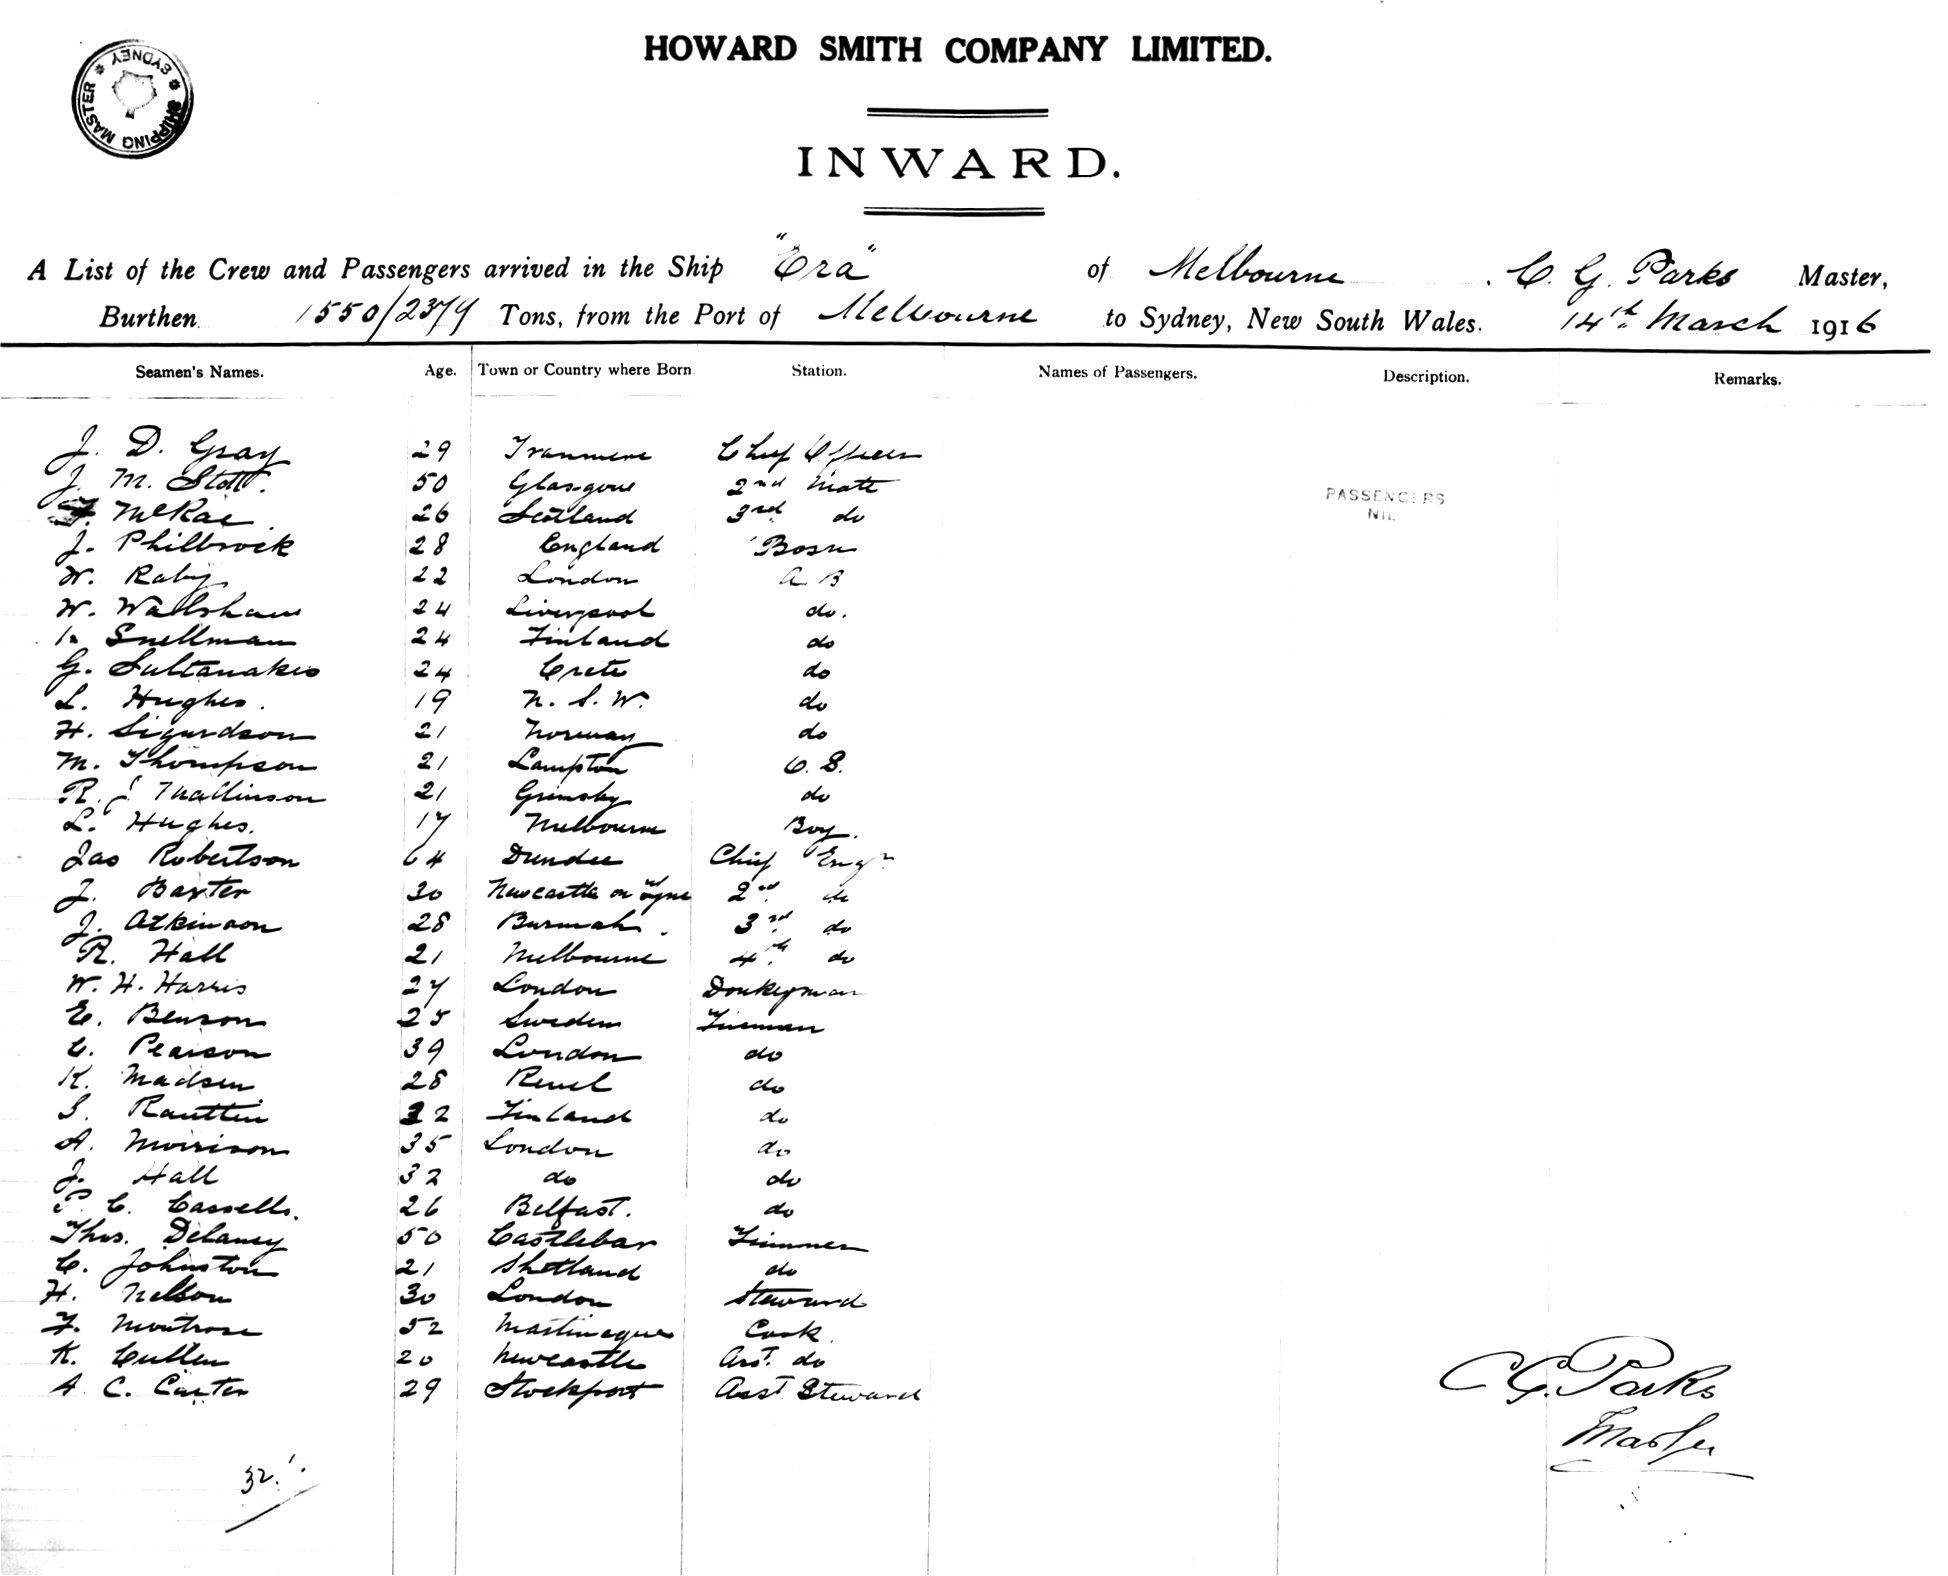 SHIPPING MASTER * SYDNEY *
HOWARD SMITH COMPANY LIMITED.
INWARD.
A List of the Crew and Passengers arrived in the Ship "Era" of Melbourne C. G. Parks Master,
Burthen 1550/2379 Tons, from the Port of Melbourne to Sydney, New South Wales. 14th March 1916
Seamen's Names. Age. Town or Country where Born Station. Names of Passengers. Description. Remarks.
J. D. Gray 29 Tranmere Chief Officer
J. M. Stott. 50 Glasgow 2nd Mate
McRae 26 Scotland 3rd do
PASSENGERS
NIL
J. Philbrock 28 England Bosn
W. Raby 22 London A. B
W. Wallshaw 24 Liverpool do.
Snellman 24 Finland do
G. Sultanakis 24 Crete do
L. Hughes. 19 N. S. W. do
H. Sigurdson 21 Norway do
M. Thompson 21 Lampton O. S.
R. J Mallinson 21 Grimsby do
L. Hughes. 17 Melbourne Boy.
Jas Robertson 64 Dundee Chief Engr
J. Baxter 30 Newcastle on Tyne 2nd do
J. Atkinson 28 Burmah. 3rd do
R. Hall 21 Melbourne 4th do
W. H. Harris 27 London Donkeyman
E. Benson 25 Sweden Fireman
C. Pearson 39 London do
K. Madsen 28 Revel do
S. Rauttin 22 Finland do
A. Morrison 35 London do
J. Hall 32 do do
P. C. Cassells. 26 Belfast. do
Thos. Delaney 50 Castlebar Trimmer
C. Johnston 21 Shetland do
H. Nelson 30 London Steward
F. Montrose 52 Martinaque Cook
K. Cullen 20 Newcastle Asst. do
A. C. Carter 29 Stockport Asst Steward
C G. Parks
Master
32.